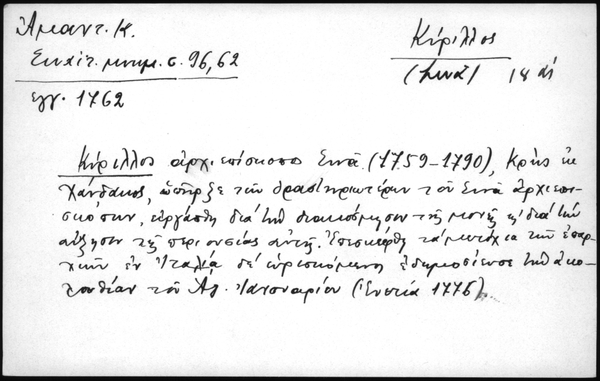 Ἀμαντ. Κ.
Σιναϊτ. μνημ. σ. 96, 62
ἔγγ. 1762
Κύριλλος
(Σινᾶ) 18 αἰ
Κύριλλος ἀρχιεπίσκοπος Σινᾶ (1759-1790), Κρὴς ἐκ
Χάνδακος, ὑπῆρξε τῶν δραστηριωτέρων τοῦ Σινᾶ ἀρχιεπι-
σκόπων, εἰργάσθη διὰ τὴν διακόσμησιν τῆς μονῆς κ' διὰ τὴν
αὔξησιν τῆς περιουσίας αὐτῆς. Ἐπεσκέφθη τὰ μετόχια τῶν ἐπαρ-
χιῶν ἐν Ἰταλίᾳ δὲ εὑρισκόμενος ἐδημοσίευσε τὴν ἀκο-
λουθίαν τοῦ Ἁγ. Ἰαννουαρίου (Ἑνετία 1775).